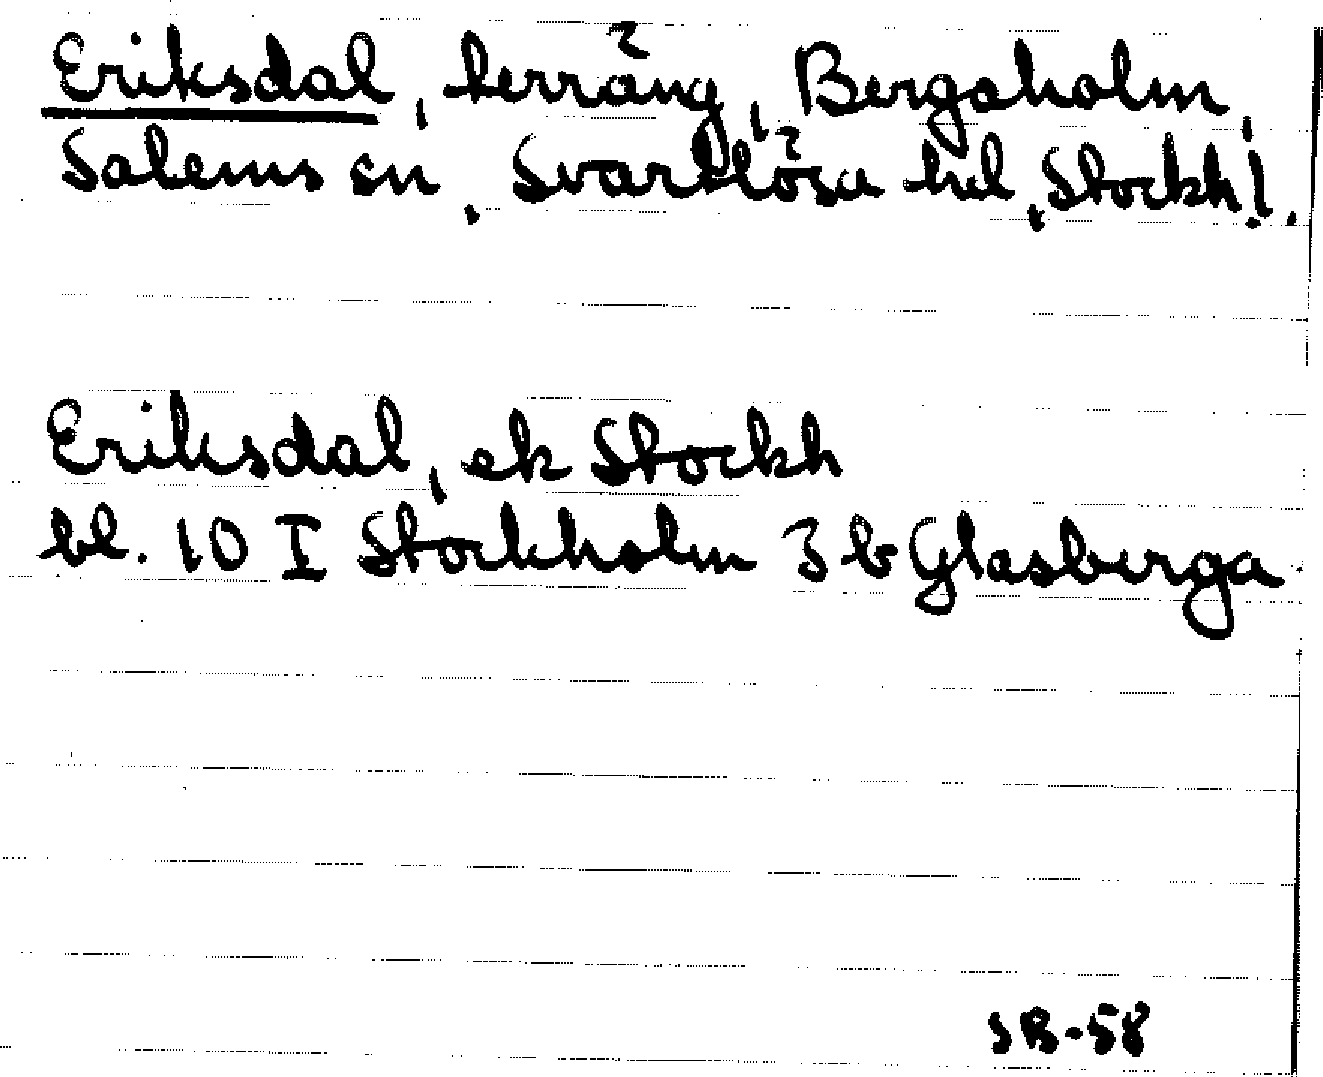 Eriksdal, terräng, Bergaholm,
Salems sn, Svartlösa hd, Stockh. l.
Eriksdal, ek Stockh
bl. 10 I Stockholm 3 b Glasberga
SB-58